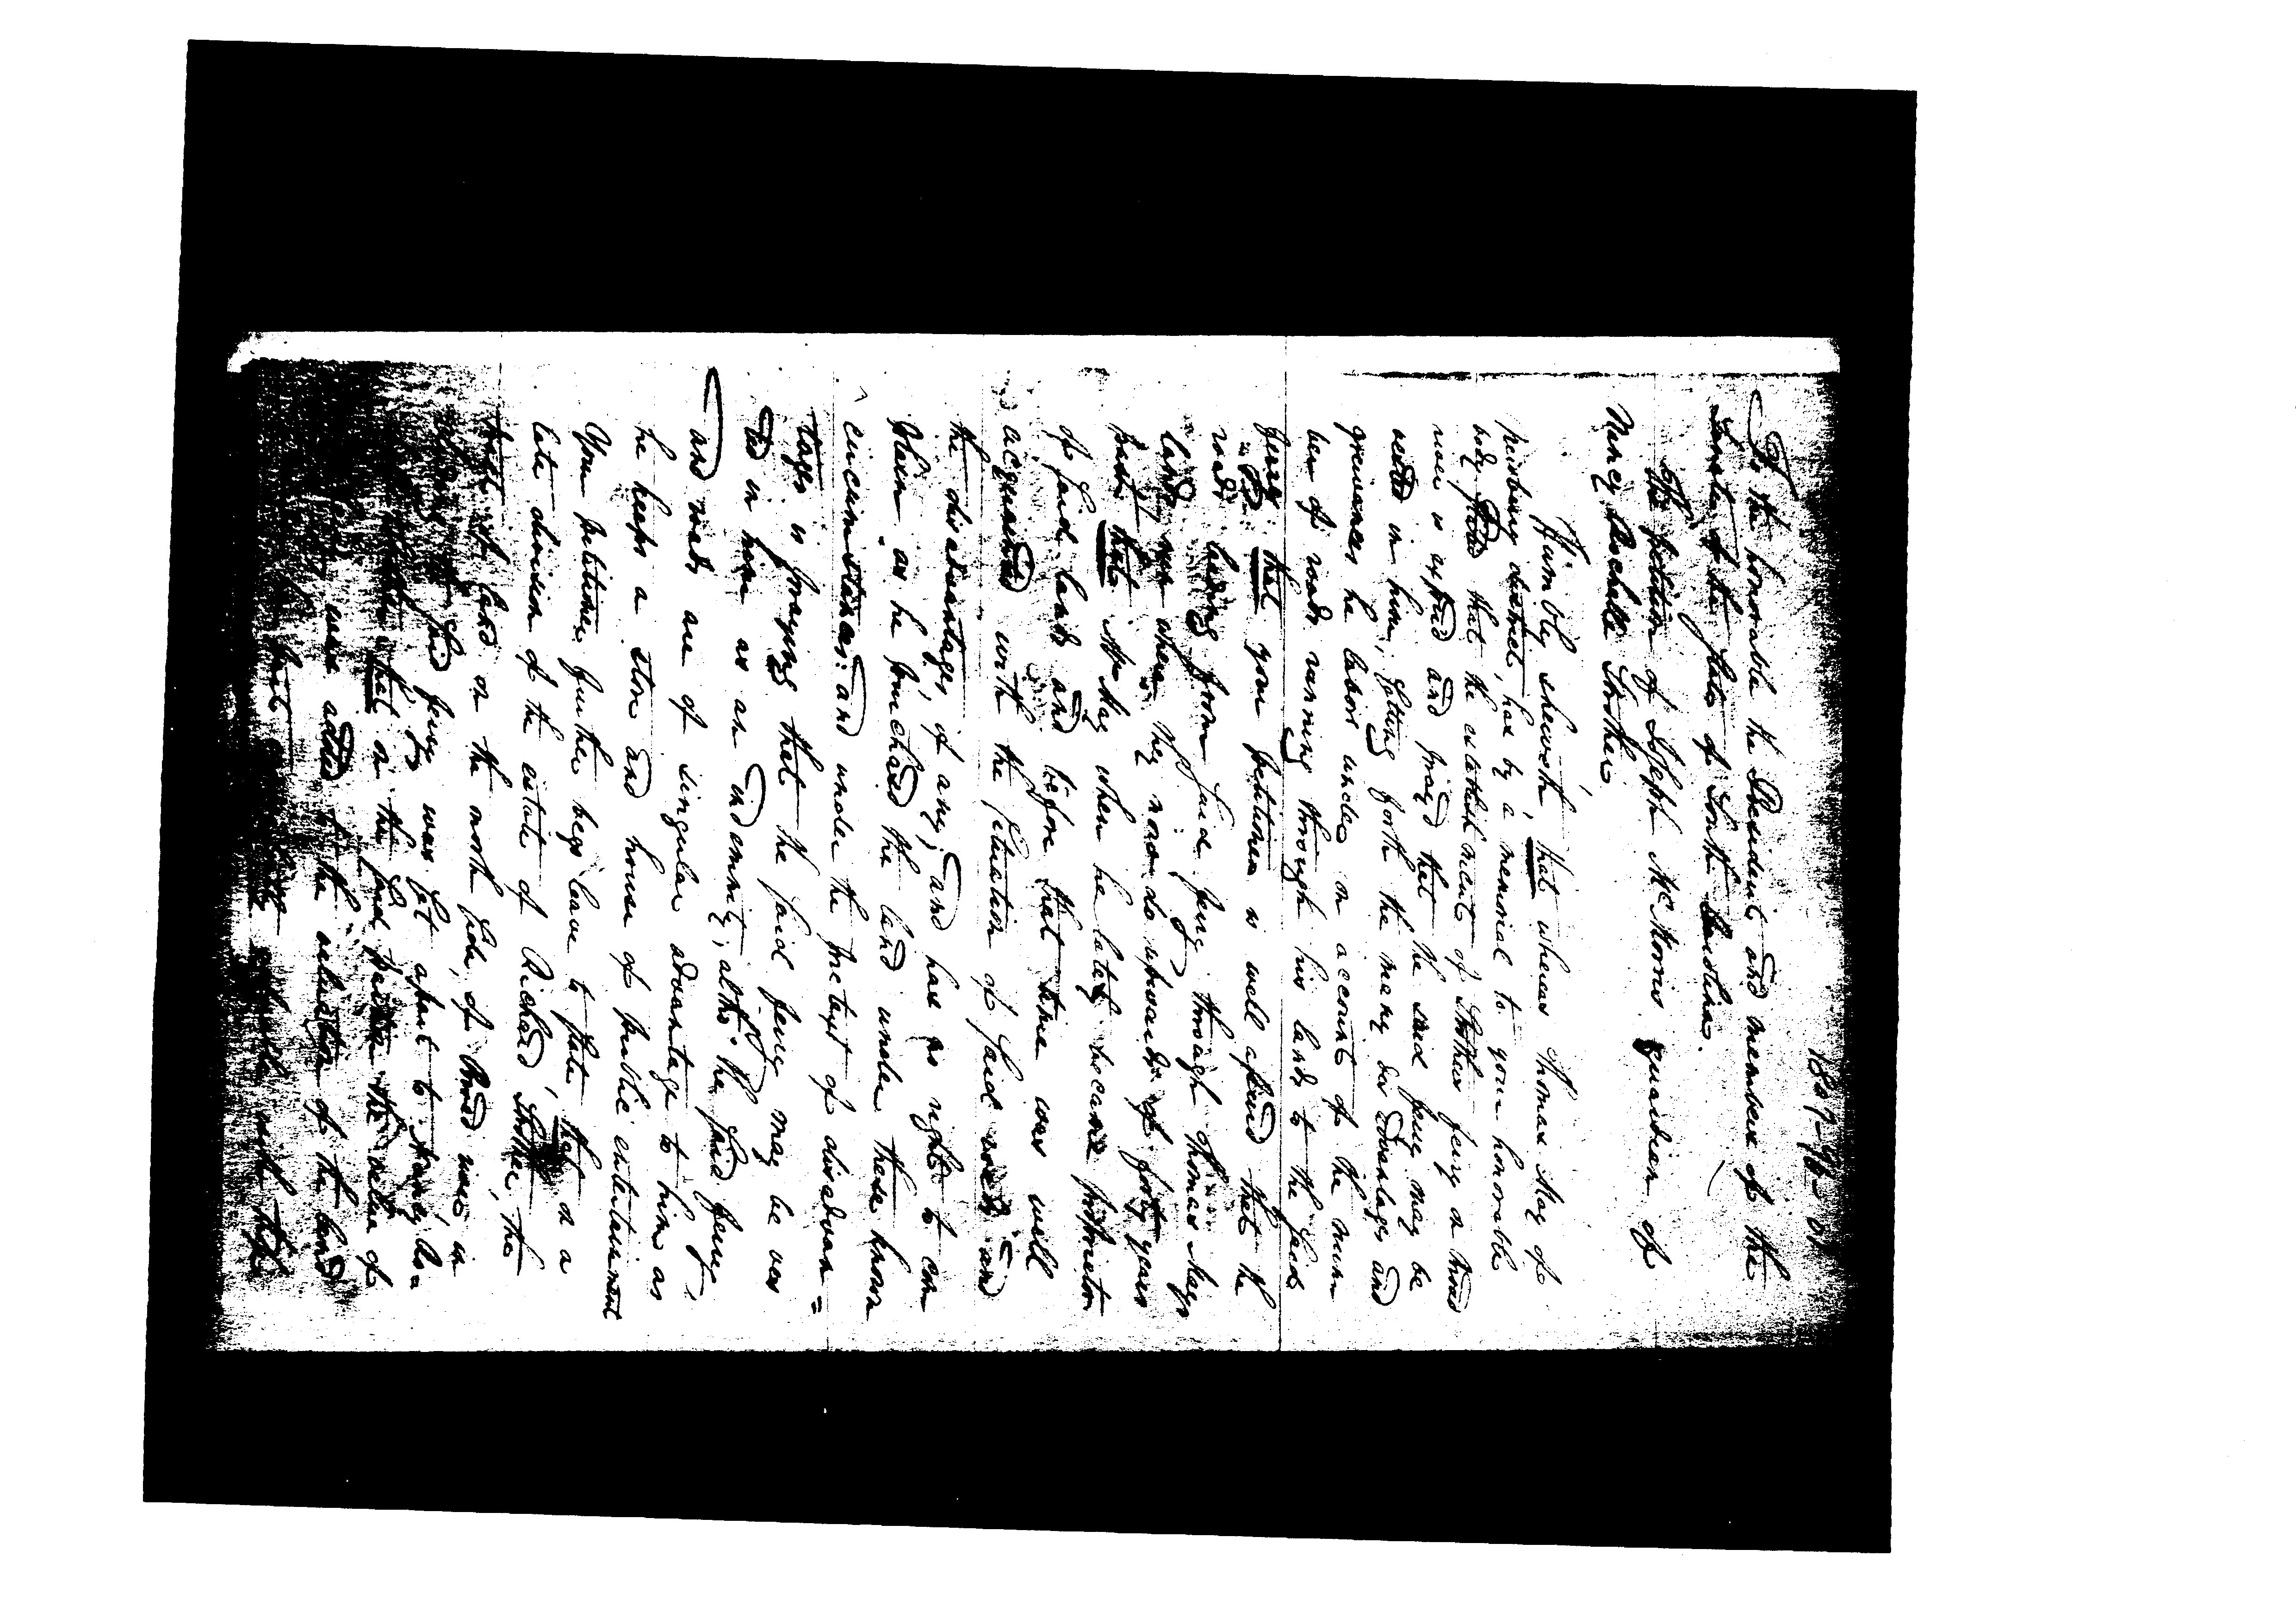 1807-90-01
To the honorable the President and members of the
Senate of the State of South Carolina.
The petition of Joseph McMorris guardian of
Nancy Rochelle Strother,
Humbly sheweth, that whereas Thomas May of
Newbury district, has by a memorial to your honorable
body stated that the establishment of Strothers ferry on Broad
river is expired and prayed that the said ferry may be
vested in him, setting forth the many disadvantages and
grievances he labors under on account of the num
ber of roads running through his lands to the said
ferry that your petitioner is well assured that the
roads leading from said ferry through Thomas Mays
lands run where they now do upwards of forty years
past that Mr May when he lately became proprietor
of said lands and before that time was well
acquainted with the situation of said roads and
the disadvantages, if any, and has no right to com
plain as he purchased the land under these known
circumstances: and under the pretext of disadvan=
tages is praying that the said ferry may be ves
ted in him as an indemnity, altho' the said ferry
and roads are of singular advantage to him as
he keeps a store and house of public entertainment
Your petitioner further begs leave to state, that on a
late division of the estate of Richard Strother, the
tract of land on the north side of Broad river, in
said ferry was set apart to Nancy Ro=
that on the said the value of
were added to the valuation of the land